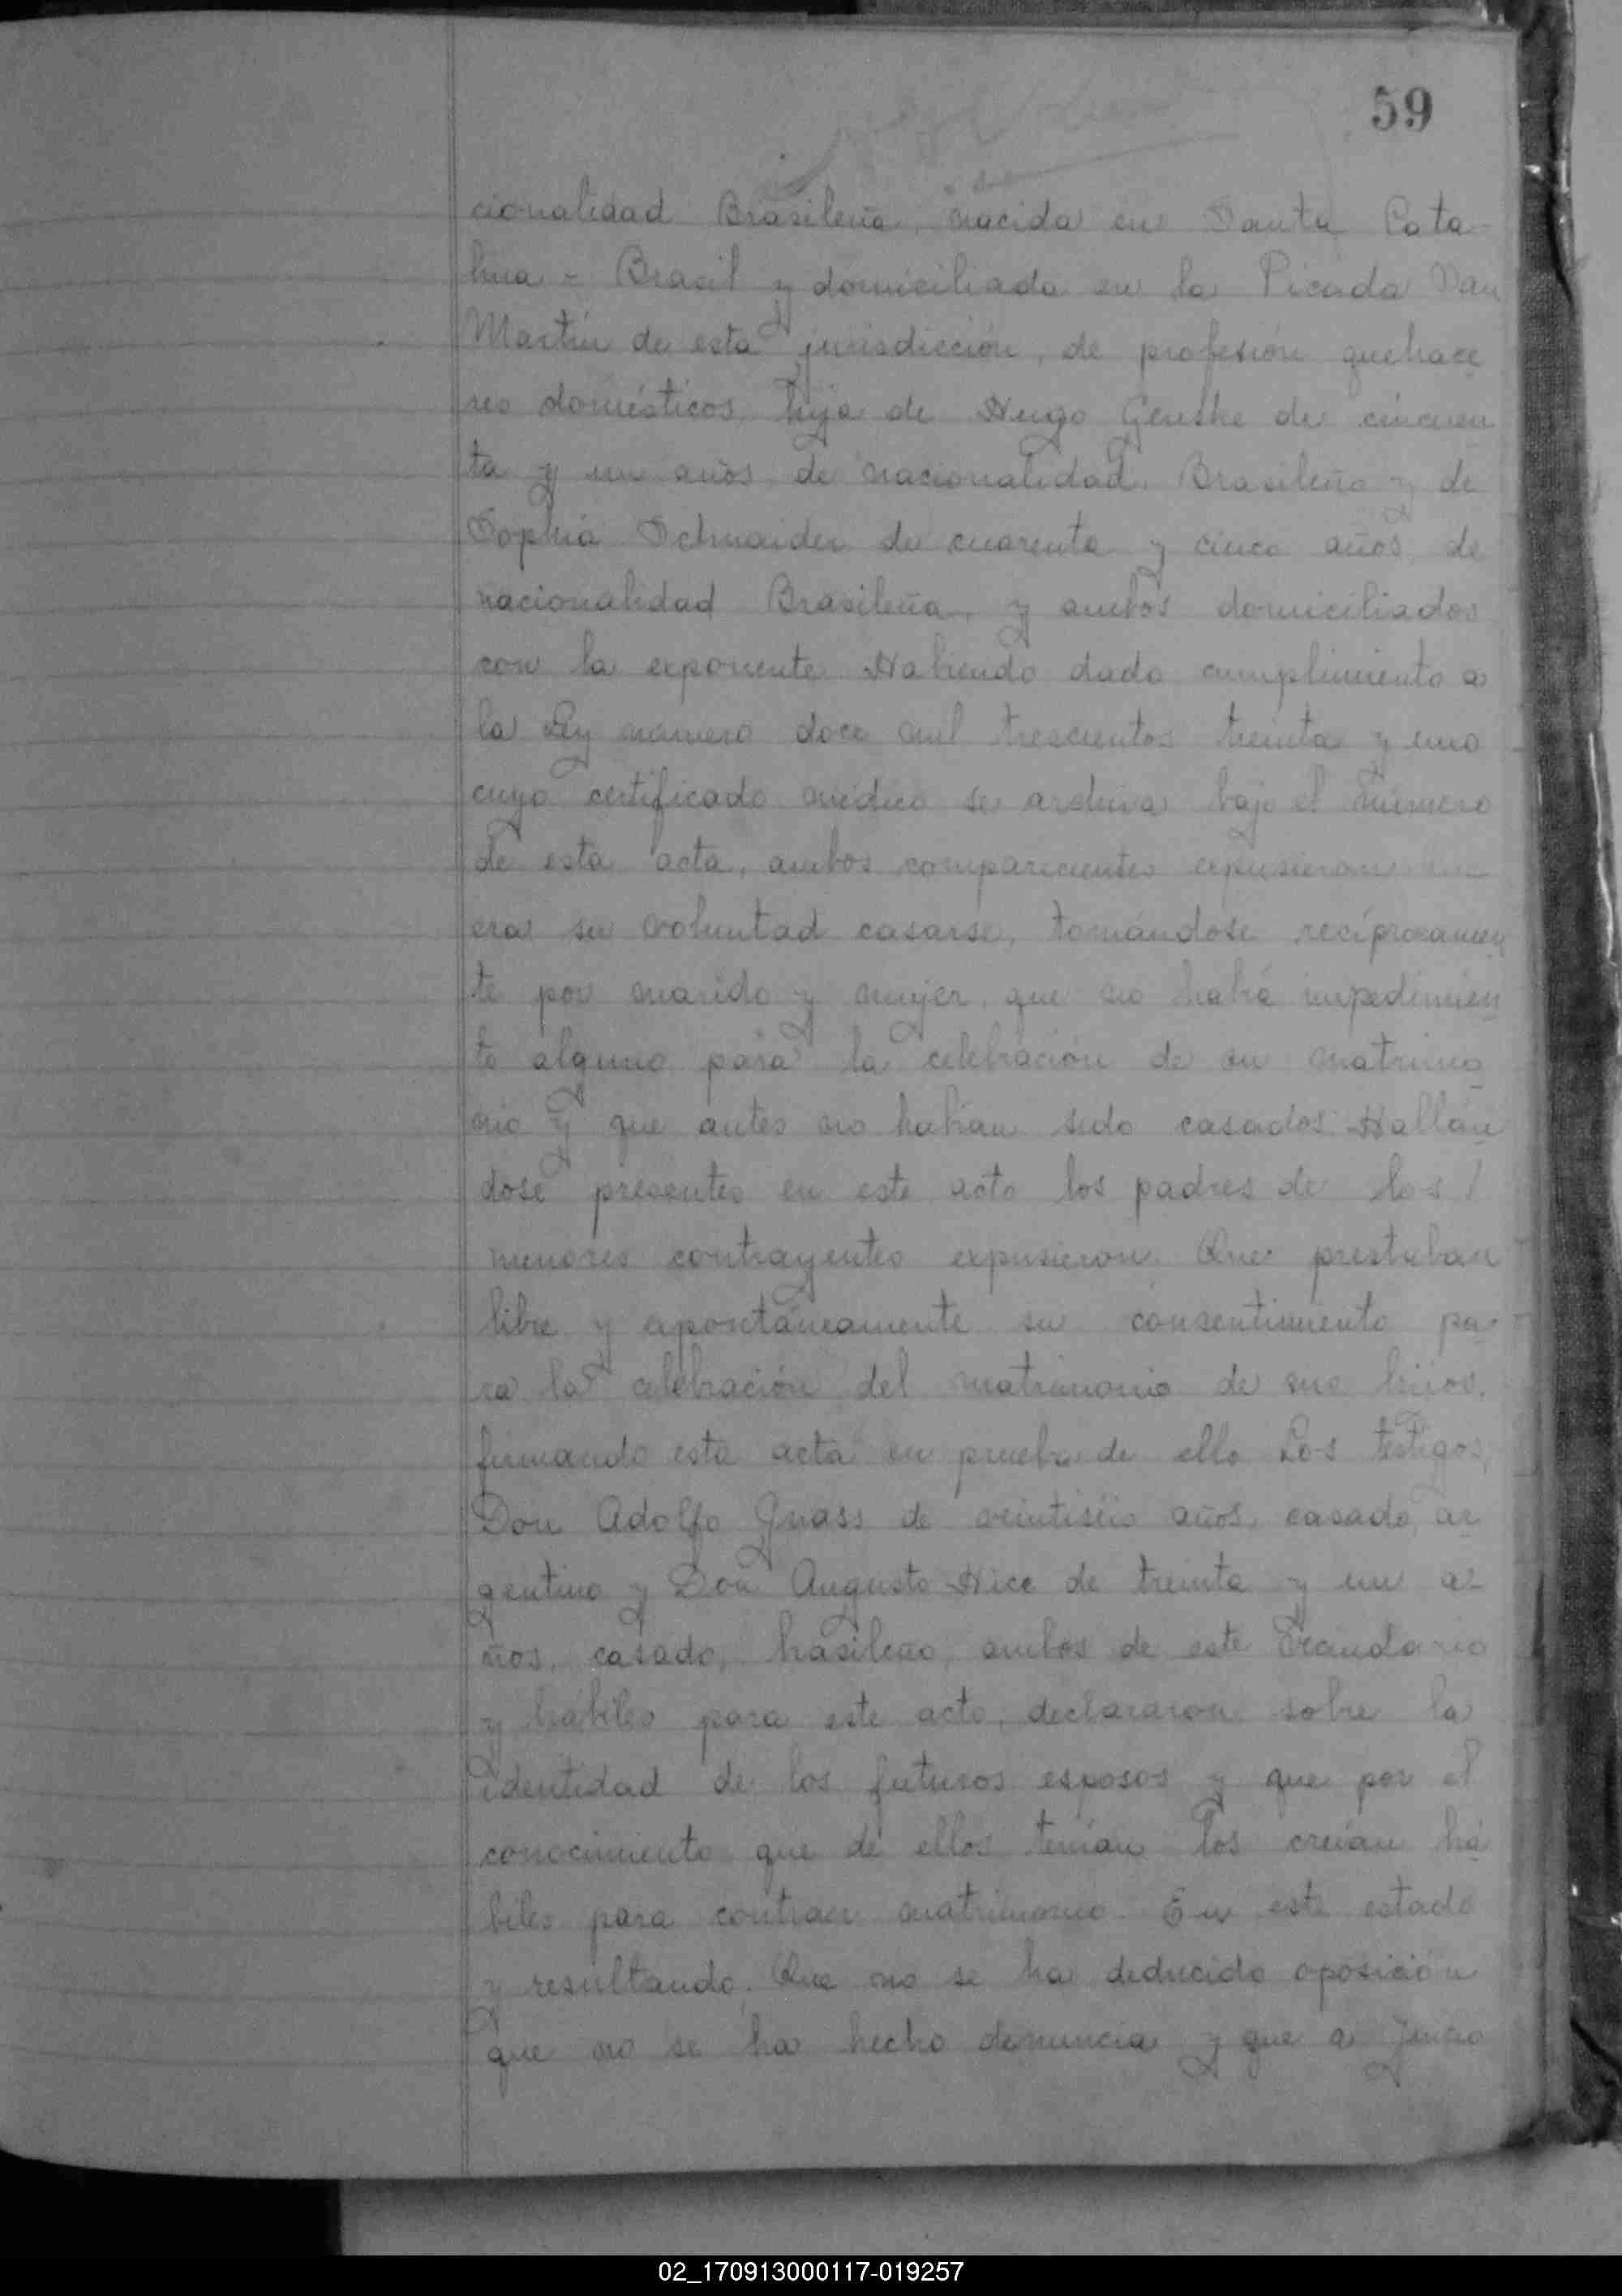 59
cionalidad Brasileña, nacida en Santa Cata-
lina - Brasil y domiciliada en la Picada San
Martín de esta jurisdicción, de profesión quehace
res domésticos, hija de Hugo Genske de cincuen
ta y un años, de nacionalidad Brasileño y de
Sophia Schnaider de cuarenta y cinco años, de
nacionalidad Brasileña, y ambos domiciliados
con la exponente. Habiendo dado cumplimiento a
la Ley número doce mil trescientos treinta y uno
cuyo certificado médico se archiva bajo el número
de esta acta, ambos comparecientes expusieron
era su voluntad casarse, tomándose recíprocamen
te por marido y mujer, que no había impedimien
to alguno para la celebración de su matrimo
nio y que antes no habían sido casados. Hallán
dose presentes en este acto los padres de los
menores contrayentes expusieron: Que prestaban
libre y espontáneamente su consentimiento pa
ra la celebración del matrimonio de sus hijos,
firmando esta acta en prueba de ello. Los testigos,
Don Adolfo Gnass de veintiséis años, casado, ar
gentino y Don Augusto Hice de treinta y un a-
ños, casado, brasileño, ambos de este
y hábiles para este acto, declararon sobre la
identidad de los futuros esposos y que por el
conocimiento que de ellos tenían los creían há
biles para contraer matrimonio. En este estado
y resultando: Que no se ha deducido oposición
que no se ha hecho denuncia y que a juicio
02_170913000117-019257